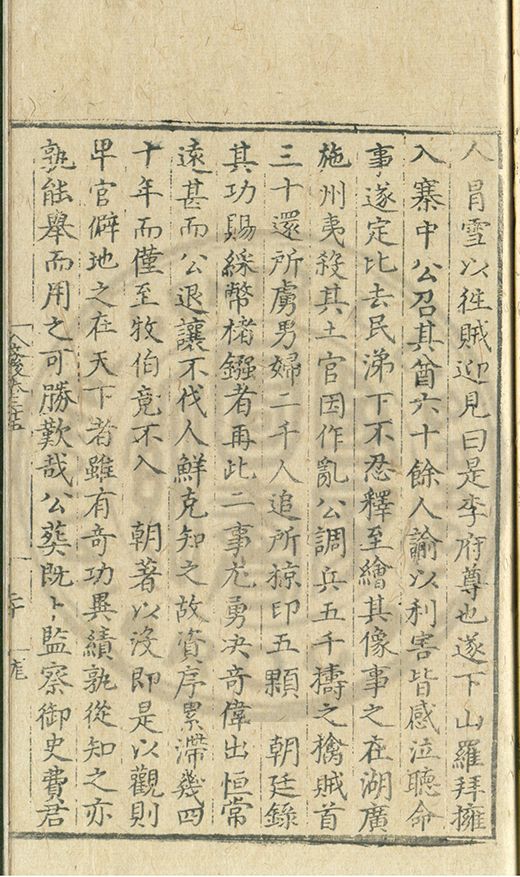 人冒雪以徃賊迎見曰是李府尊也遂下山羅拜擁
入寨中公召其酋六十餘人諭以利害皆感泣聽命
事遂定比去民涕下不忍釋至繪其像事之在湖廣
施州夷殺其土官因作亂公調兵五千擣之擒賊首
三十還所虜男婦二千人追所掠印五顆 朝廷錄
其功賜綵幣楮鏹者再此二事尤勇决奇偉出恒常
遠甚而公退讓不伐人鮮克知之故資序累滯幾四
十年而僅至牧伯竟不入 朝著以沒即是以觀則
卑官僻地之在天下者雖有奇功異績孰從知之亦
孰能舉而用之可勝歎哉公葬既卜監察御史費君